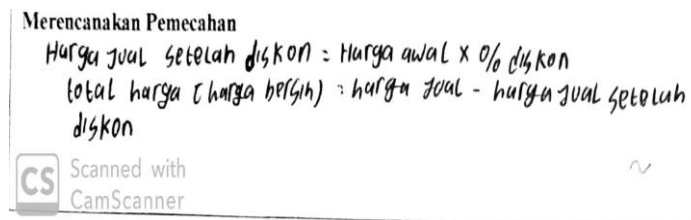 Merencanakan Pemecahan
Harga Jual setelah diskon = Harga awal x % diskon
total harga (harga bersih) : harga Jual - harga Jual setelah
diskon
CS Scanned with
CamScanner